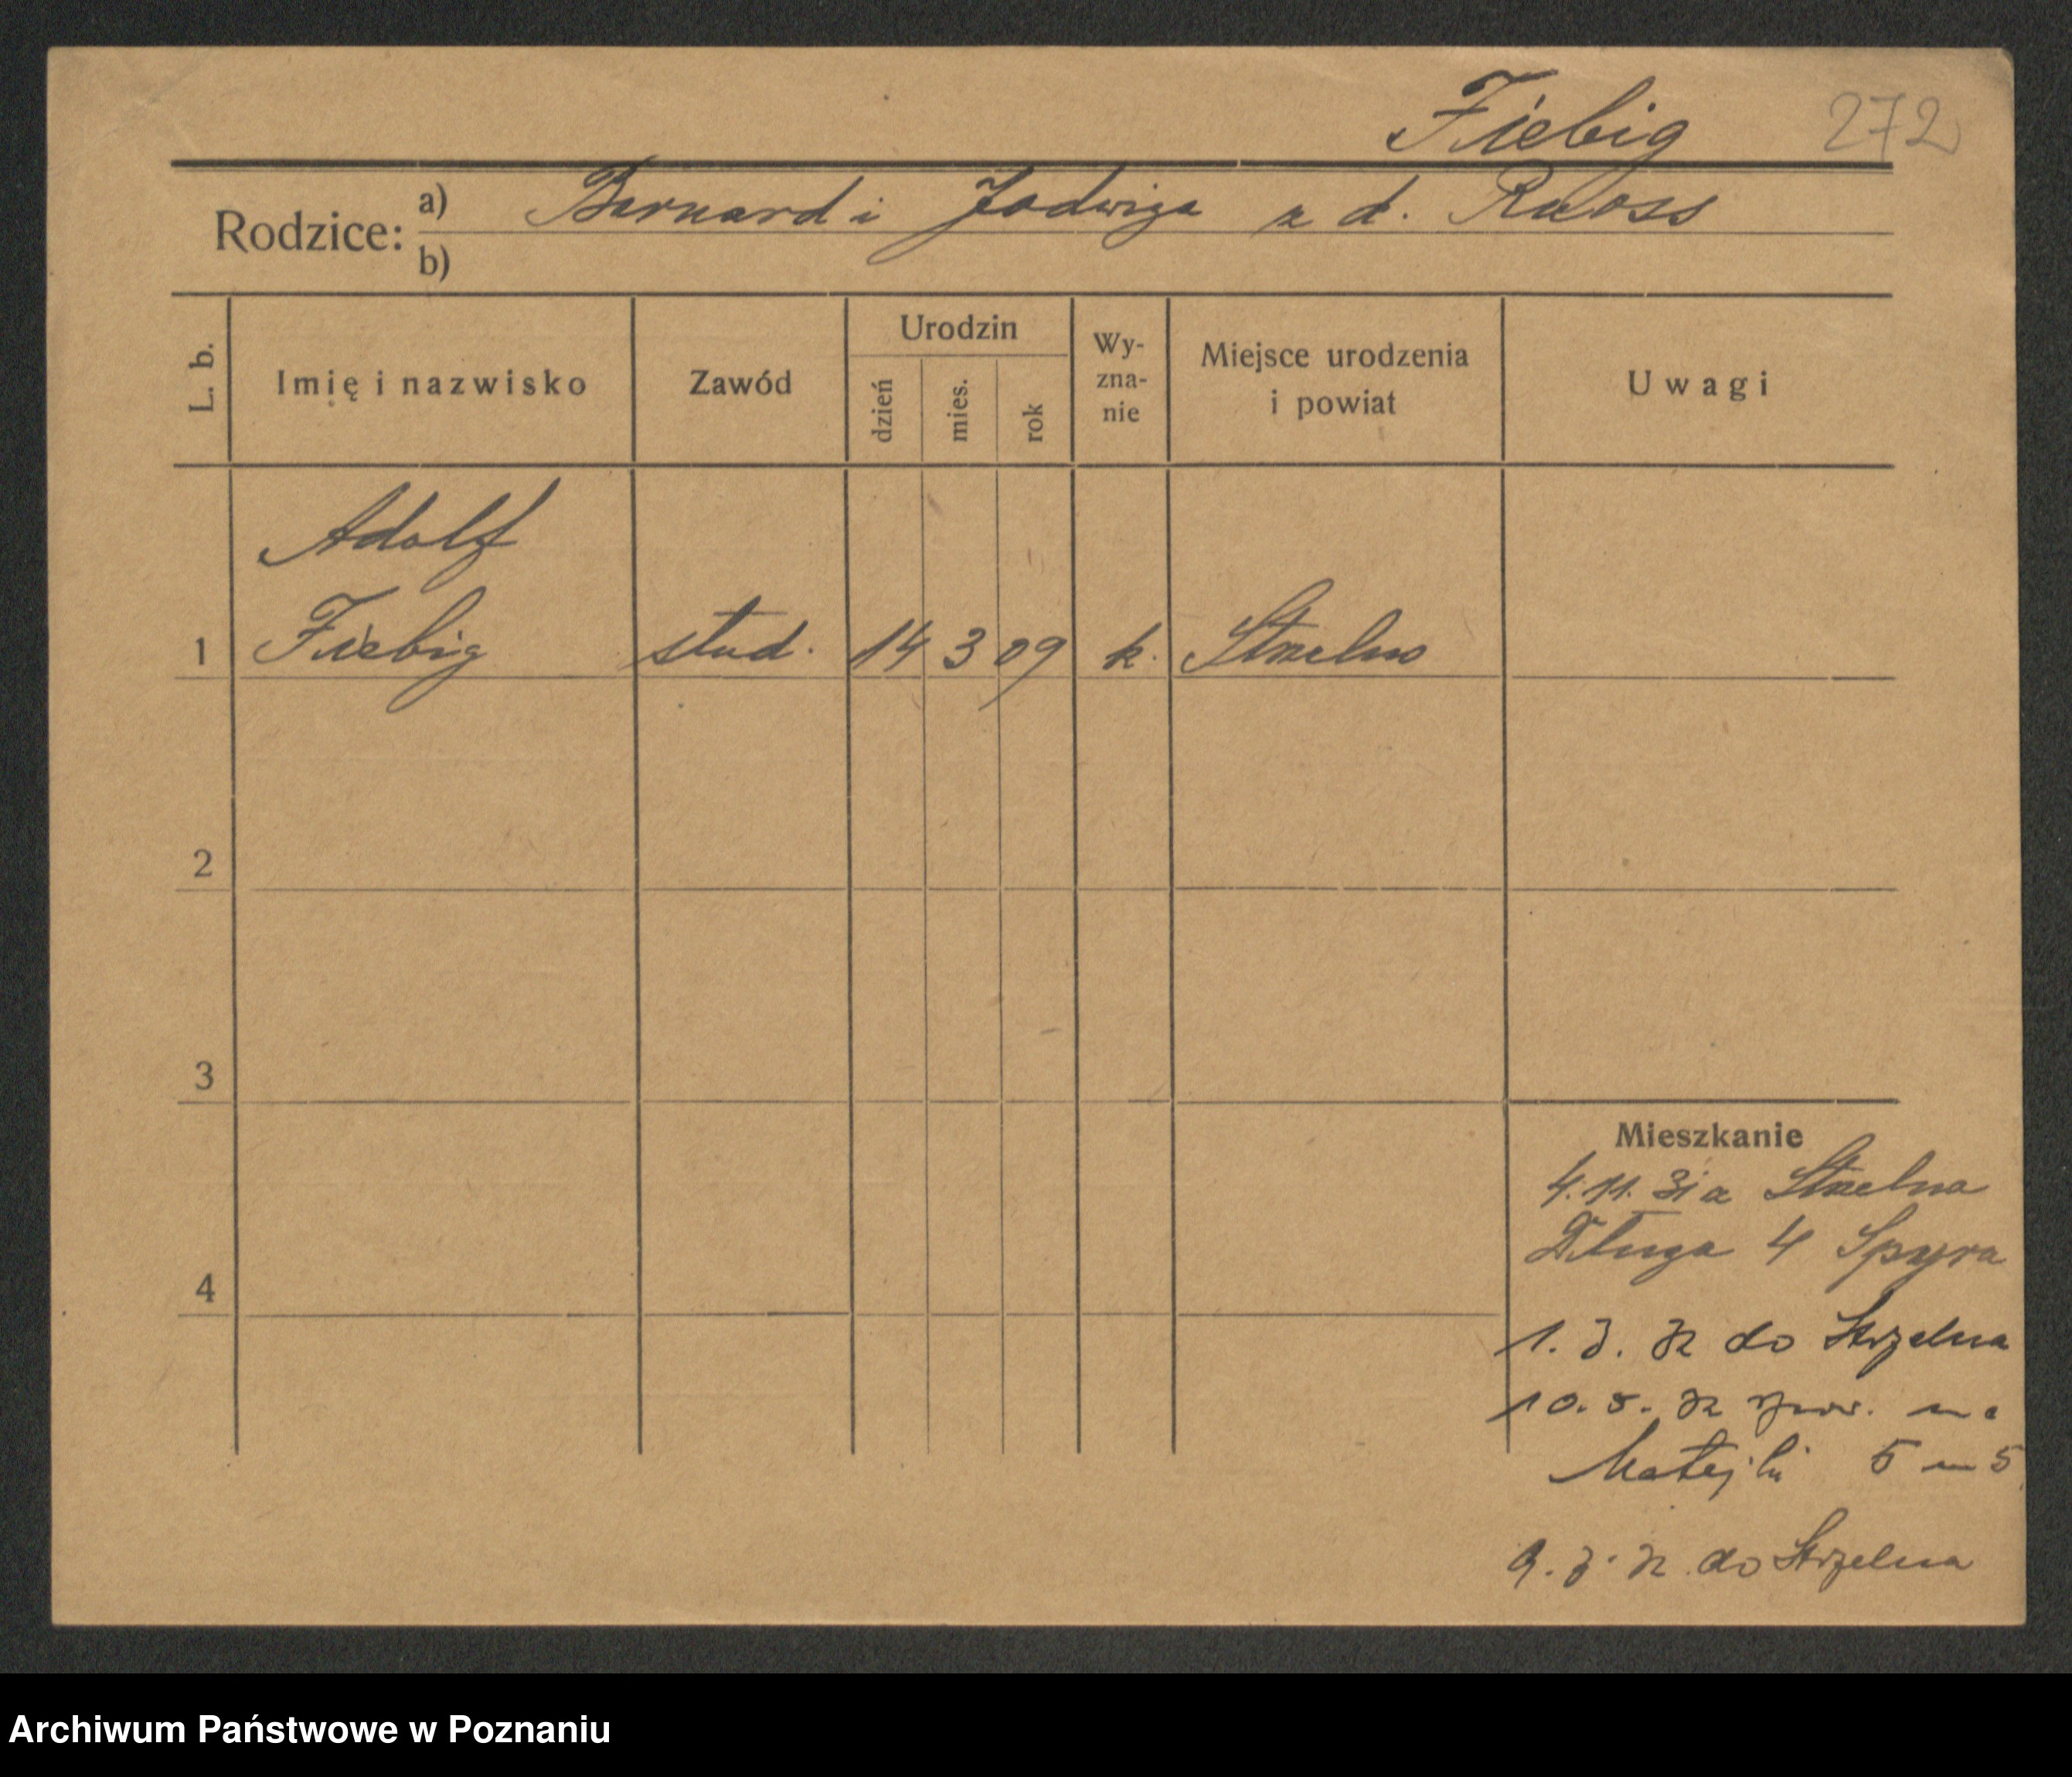 Fiebig 272
Rodzice: a) Bernard i Jadwiga z d. Raoss
b)
L. b. Imię i nazwisko Zawód Urodzin dzień mies. rok Wy-zna-nie Miejsce urodzenia i powiat Uwagi
Adolf
1 Fiebig stud. 14 3 09 k. Strzelno
2
3
4
Mieszkanie
4.11.31 z Strzelna
Długa 4 Spyra
1. 3. 32 do Strzelna
10. 32 na
Matejki 5 m 5
9. 3. 32 do Strzelna
Archiwum Państwowe w Poznaniu